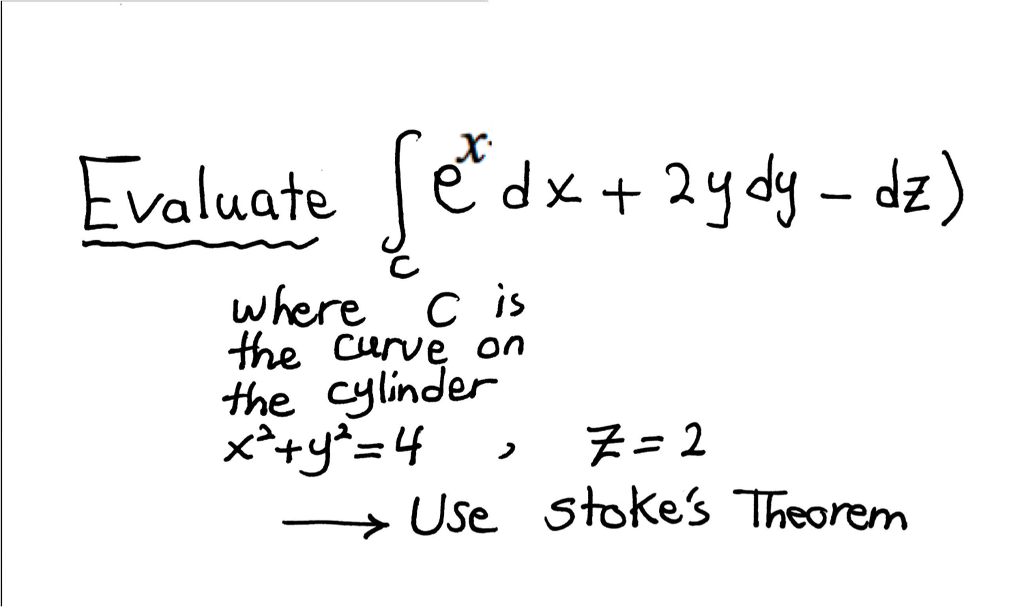 Evaluate ∫_C e^x dx + 2y dy – dz)
where C is
the curve on
the cylinder
x²+y²=4 , z=2
→ Use stoke's Theorem